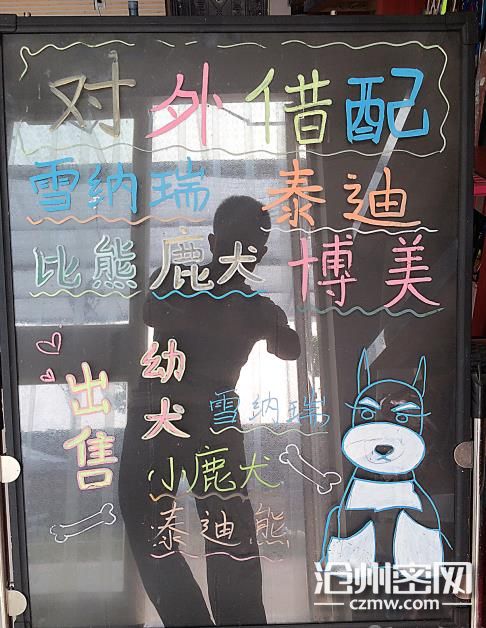 对外借配
雪纳瑞 泰迪
比熊 鹿犬 博美
出售
幼犬
雪纳瑞
小鹿犬
泰迪熊
沧州密网
czmw.com